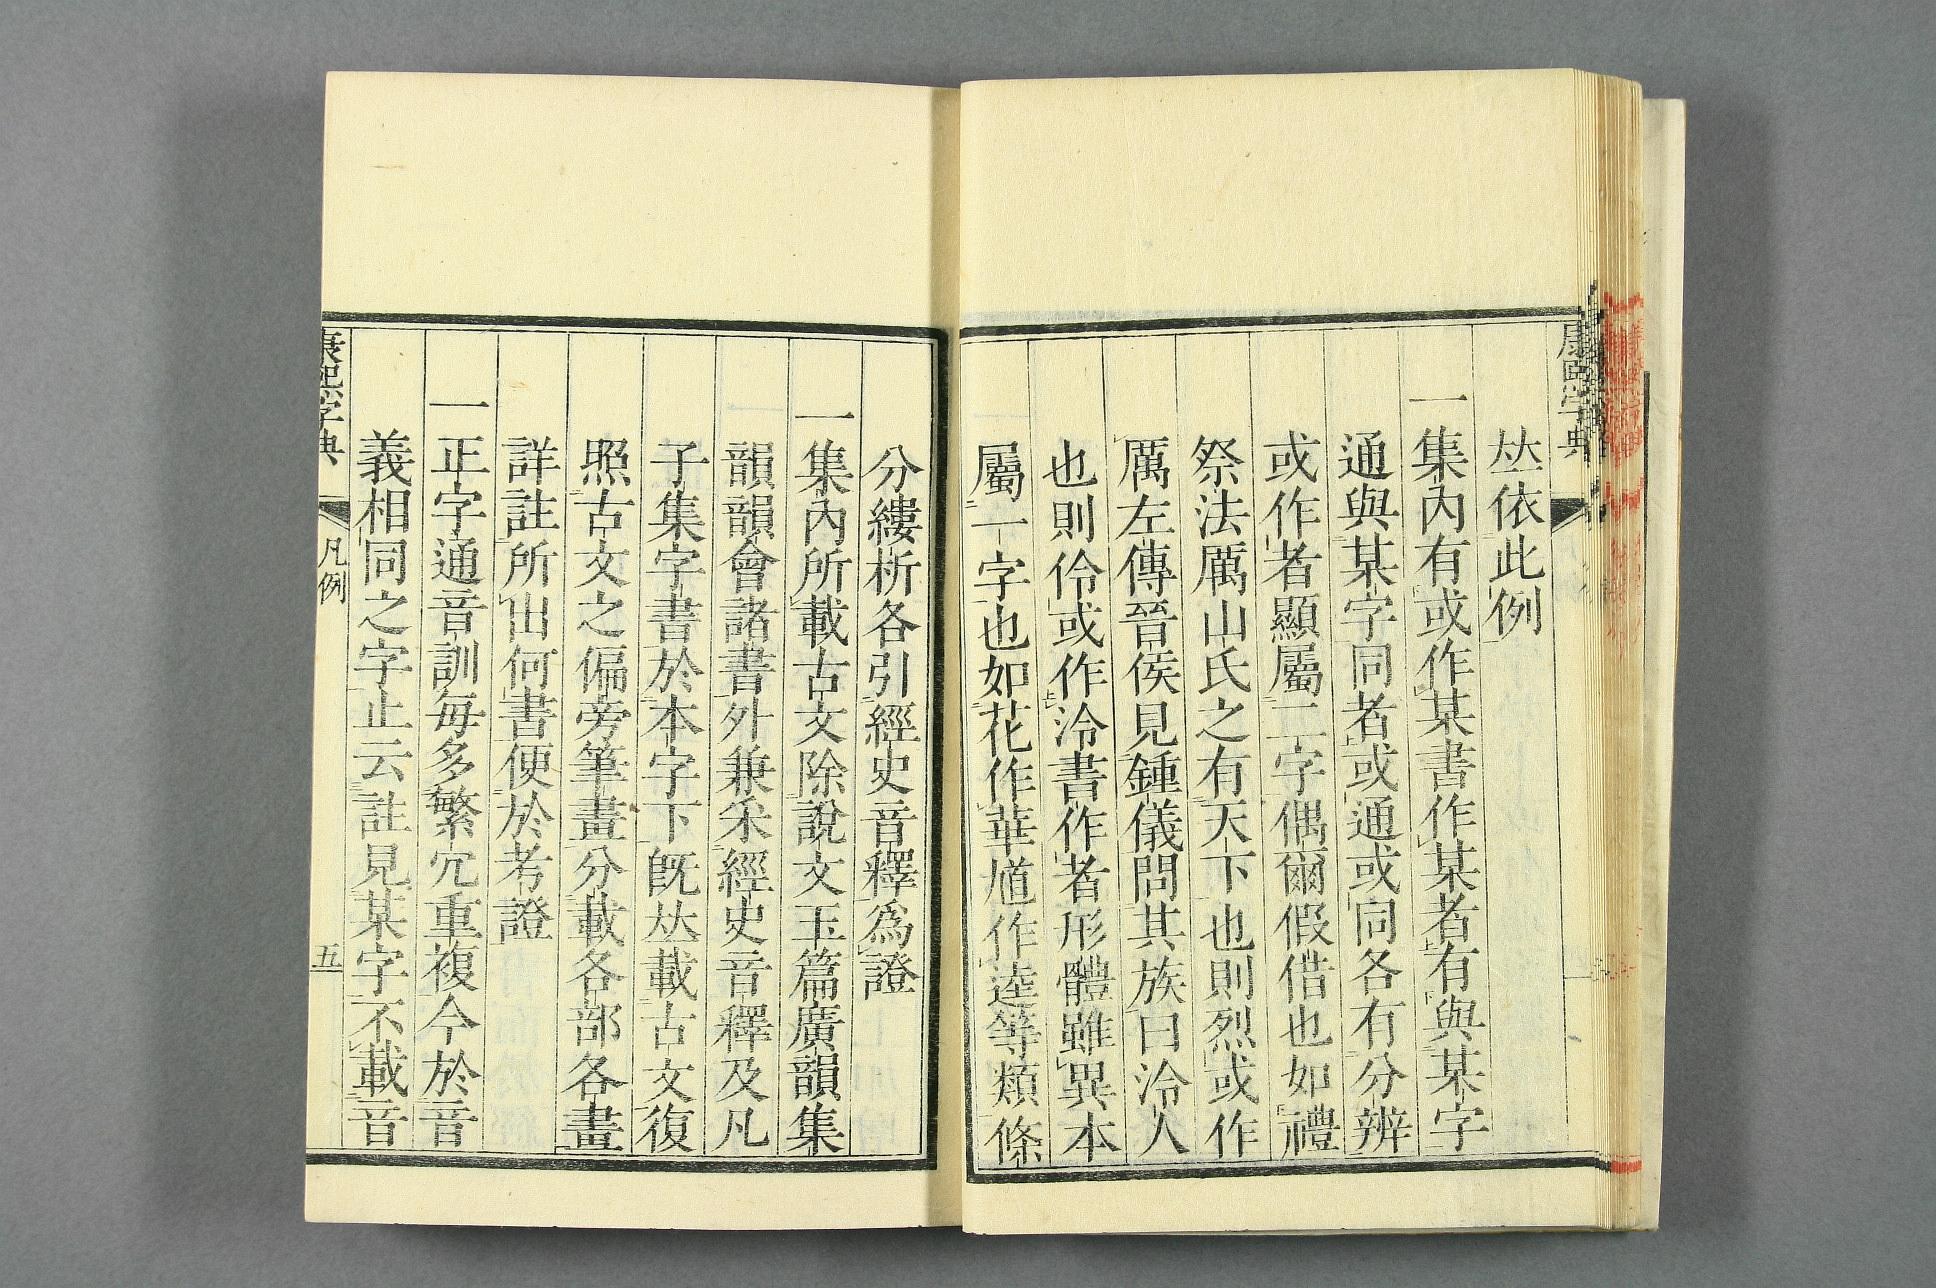 康熙字典
𠀤依此例
一集內有或作某書作某者有與某字
通與某字同者或通或同各有分辨
或作者顯屬二字偶爾假借也如禮
祭法厲山氏之有天下也則烈或作
厲左傳晉侯見鍾儀問其族曰泠人
也則伶或作泠書作者形體雖異本
屬一字也如花作華馗作逵等類條
分縷析各引經史音釋為證
一集內所載古文除說文玉篇廣韻集
韻韻會諸書外兼采經史音釋及凡
子集字書於本字下旣𠀤載古文復
照古文之偏旁筆畫分載各部各畫
詳註所出何書便於考證
一正字通音訓每多繁冗重複今於音
義相同之字止云註見某字不載音
康熙字典
凡例
五